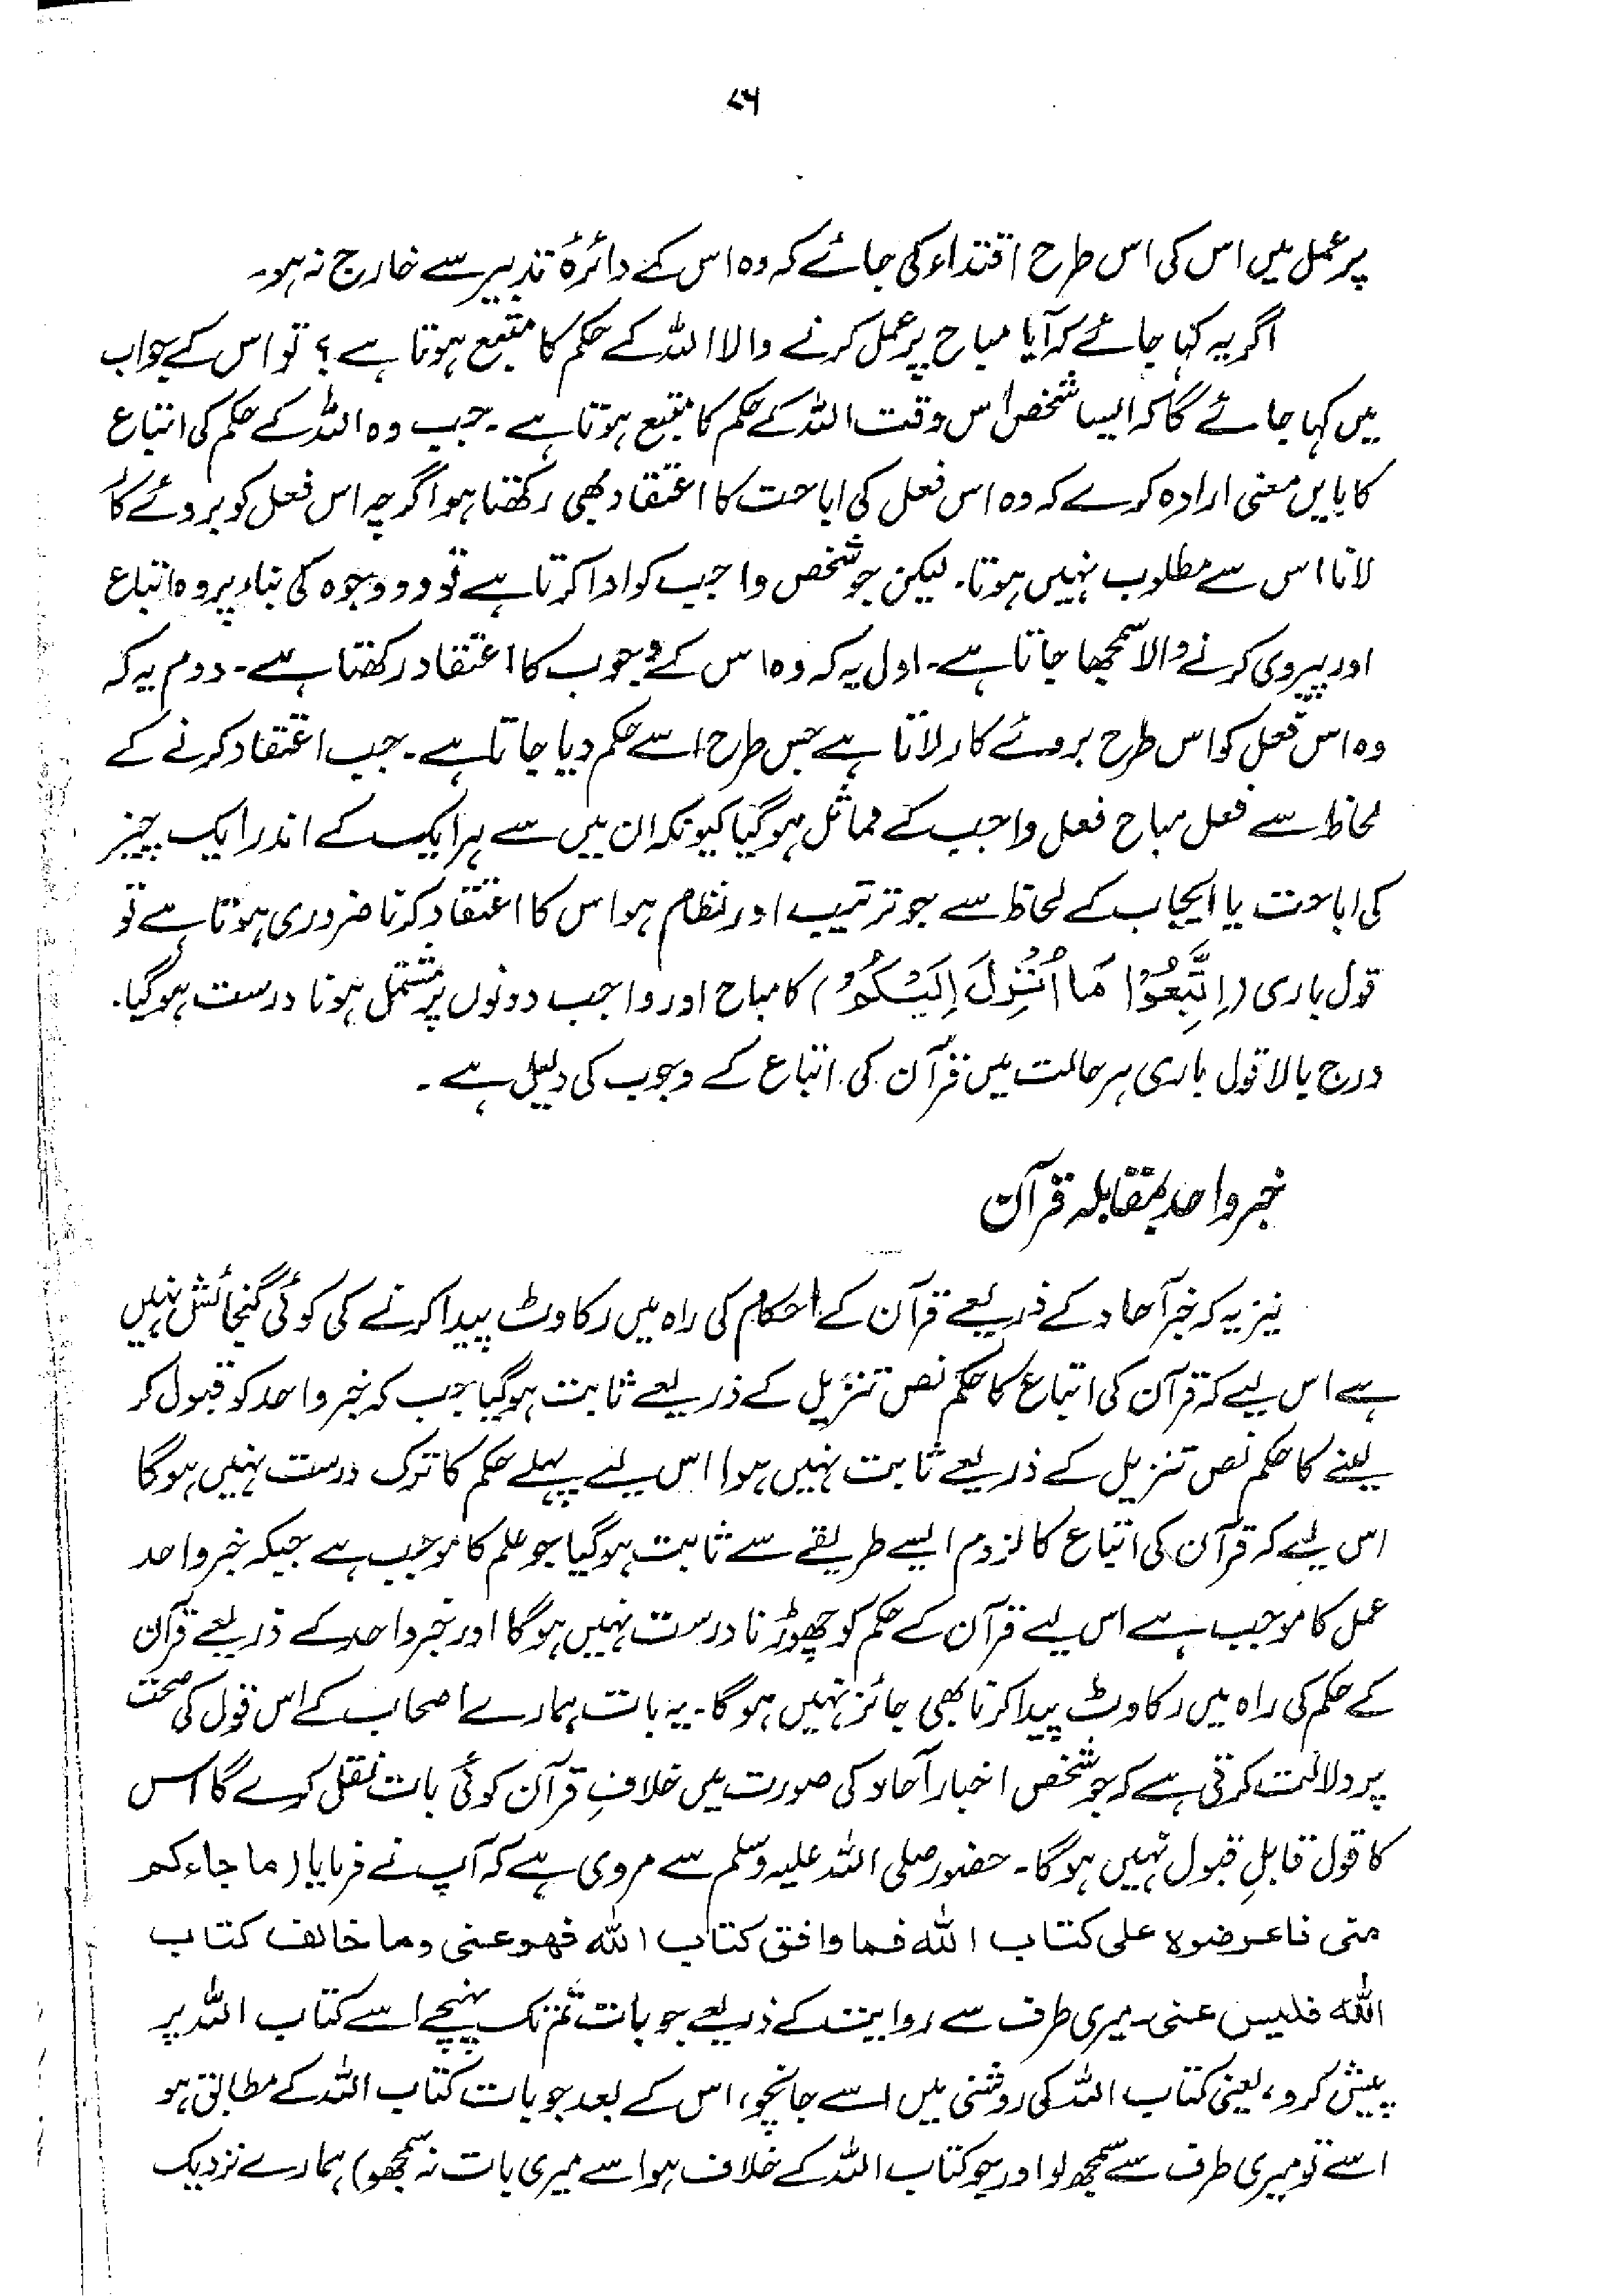 ۷۶
پر عمل میں اس کی اس طرح اقتداء کی جائے کہ وہ اس کے دائرۂ تدبیر سے خارج نہ ہو۔
اگر یہ کہا جائے کہ آیا مباح پر عمل کرنے والا اللہ کے حکم کا متبع ہوتا ہے؟ تو اس کے جواب
میں کہا جائے گا کہ ایسا شخص اس وقت اللہ کے حکم کا متبع ہوتا ہے۔ جب وہ اللہ کے حکم کی اتباع
کا بایں معنی ارادہ کرے کہ وہ اس فعل کی اباحت کا اعتقاد بھی رکھتا ہو اگرچہ اس فعل کو بروئے کا
لانا اس سے مطلوب نہیں ہوتا۔ لیکن جو شخص واجب کو ادا کرتا ہے تو دو وجوہ کی بناء پر وہ اتباع
اور پیروی کرنے والا سمجھا جاتا ہے۔ اول یہ کہ وہ اس کے وجوب کا اعتقاد رکھتا ہے۔ دوم یہ کہ
وہ اس فعل کو اس طرح بروئے کار لاتا ہے جس طرح اسے حکم دیا جاتا ہے۔ جب اعتقاد کرنے کے
لحاظ سے فعل مباح فعل واجب کے مماثل ہو گیا کیونکہ ان میں سے ہر ایک کے اندر ایک چیز
کی اباحت یا ایجاب کے لحاظ سے جو ترتیب اور نظام ہو اس کا اعتقاد کرنا ضروری ہوتا ہے تو
قول باری (اِتَّبِعُوْا مَا اُنْزِلَ اِلَيْكُمْ) کا مباح اور واجب دونوں پر مشتمل ہونا درست ہو گیا۔
درج بالا قول باری ہر حالت میں قرآن کی اتباع کے وجوب کی دلیل ہے۔
خبر واحد بمقابلہ قرآن
نیز یہ کہ خبر آحاد کے ذریعے قرآن کے احکام کی راہ میں رکاوٹ پیدا کرنے کی کوئی گنجائش نہیں
ہے اس لیے کہ قرآن کی اتباع کا حکم نص تنزیل کے ذریعے ثابت ہو گیا جب کہ خبر واحد کو قبول کر
لینے کا حکم نص تنزیل کے ذریعے ثابت نہیں ہوا اس لیے پہلے حکم کا ترک درست نہیں ہوگا
اس لیے کہ قرآن کی اتباع کا لزوم ایسے طریقے سے ثابت ہو گیا جو علم کا موجب ہے جبکہ خبر واحد
عمل کا موجب ہے اس لیے قرآن کے حکم کو چھوڑنا درست نہیں ہوگا اور خبر واحد کے ذریعے قرآن
کے حکم کی راہ میں رکاوٹ پیدا کرنا بھی جائز نہیں ہوگا۔ یہ بات ہمارے اصحاب کے اس قول کی صحت
پر دلالت کرتی ہے کہ جو شخص اخبار آحاد کی صورت میں خلافِ قرآن کوئی بات نقل کرے گا اس
کا قول قابلِ قبول نہیں ہوگا۔ حضور صلی اللہ علیہ وسلم سے مروی ہے کہ آپ نے فرمایا (ما جاءكم
منی فاعرضوه علی كتاب الله فما وافق كتاب الله فهو عنی وما خالف كتاب
الله فليس عنی۔ میری طرف سے روایت کے ذریعے جو بات تم تک پہنچے اسے کتاب اللہ پر
پیش کرو، یعنی کتاب اللہ کی روشنی میں اسے جانچو، اس کے بعد جو بات کتاب اللہ کے مطابق ہو
اسے تو میری طرف سے سمجھ لو اور جو کتاب اللہ کے خلاف ہو اسے میری بات نہ سمجھو) ہمارے نزدیک